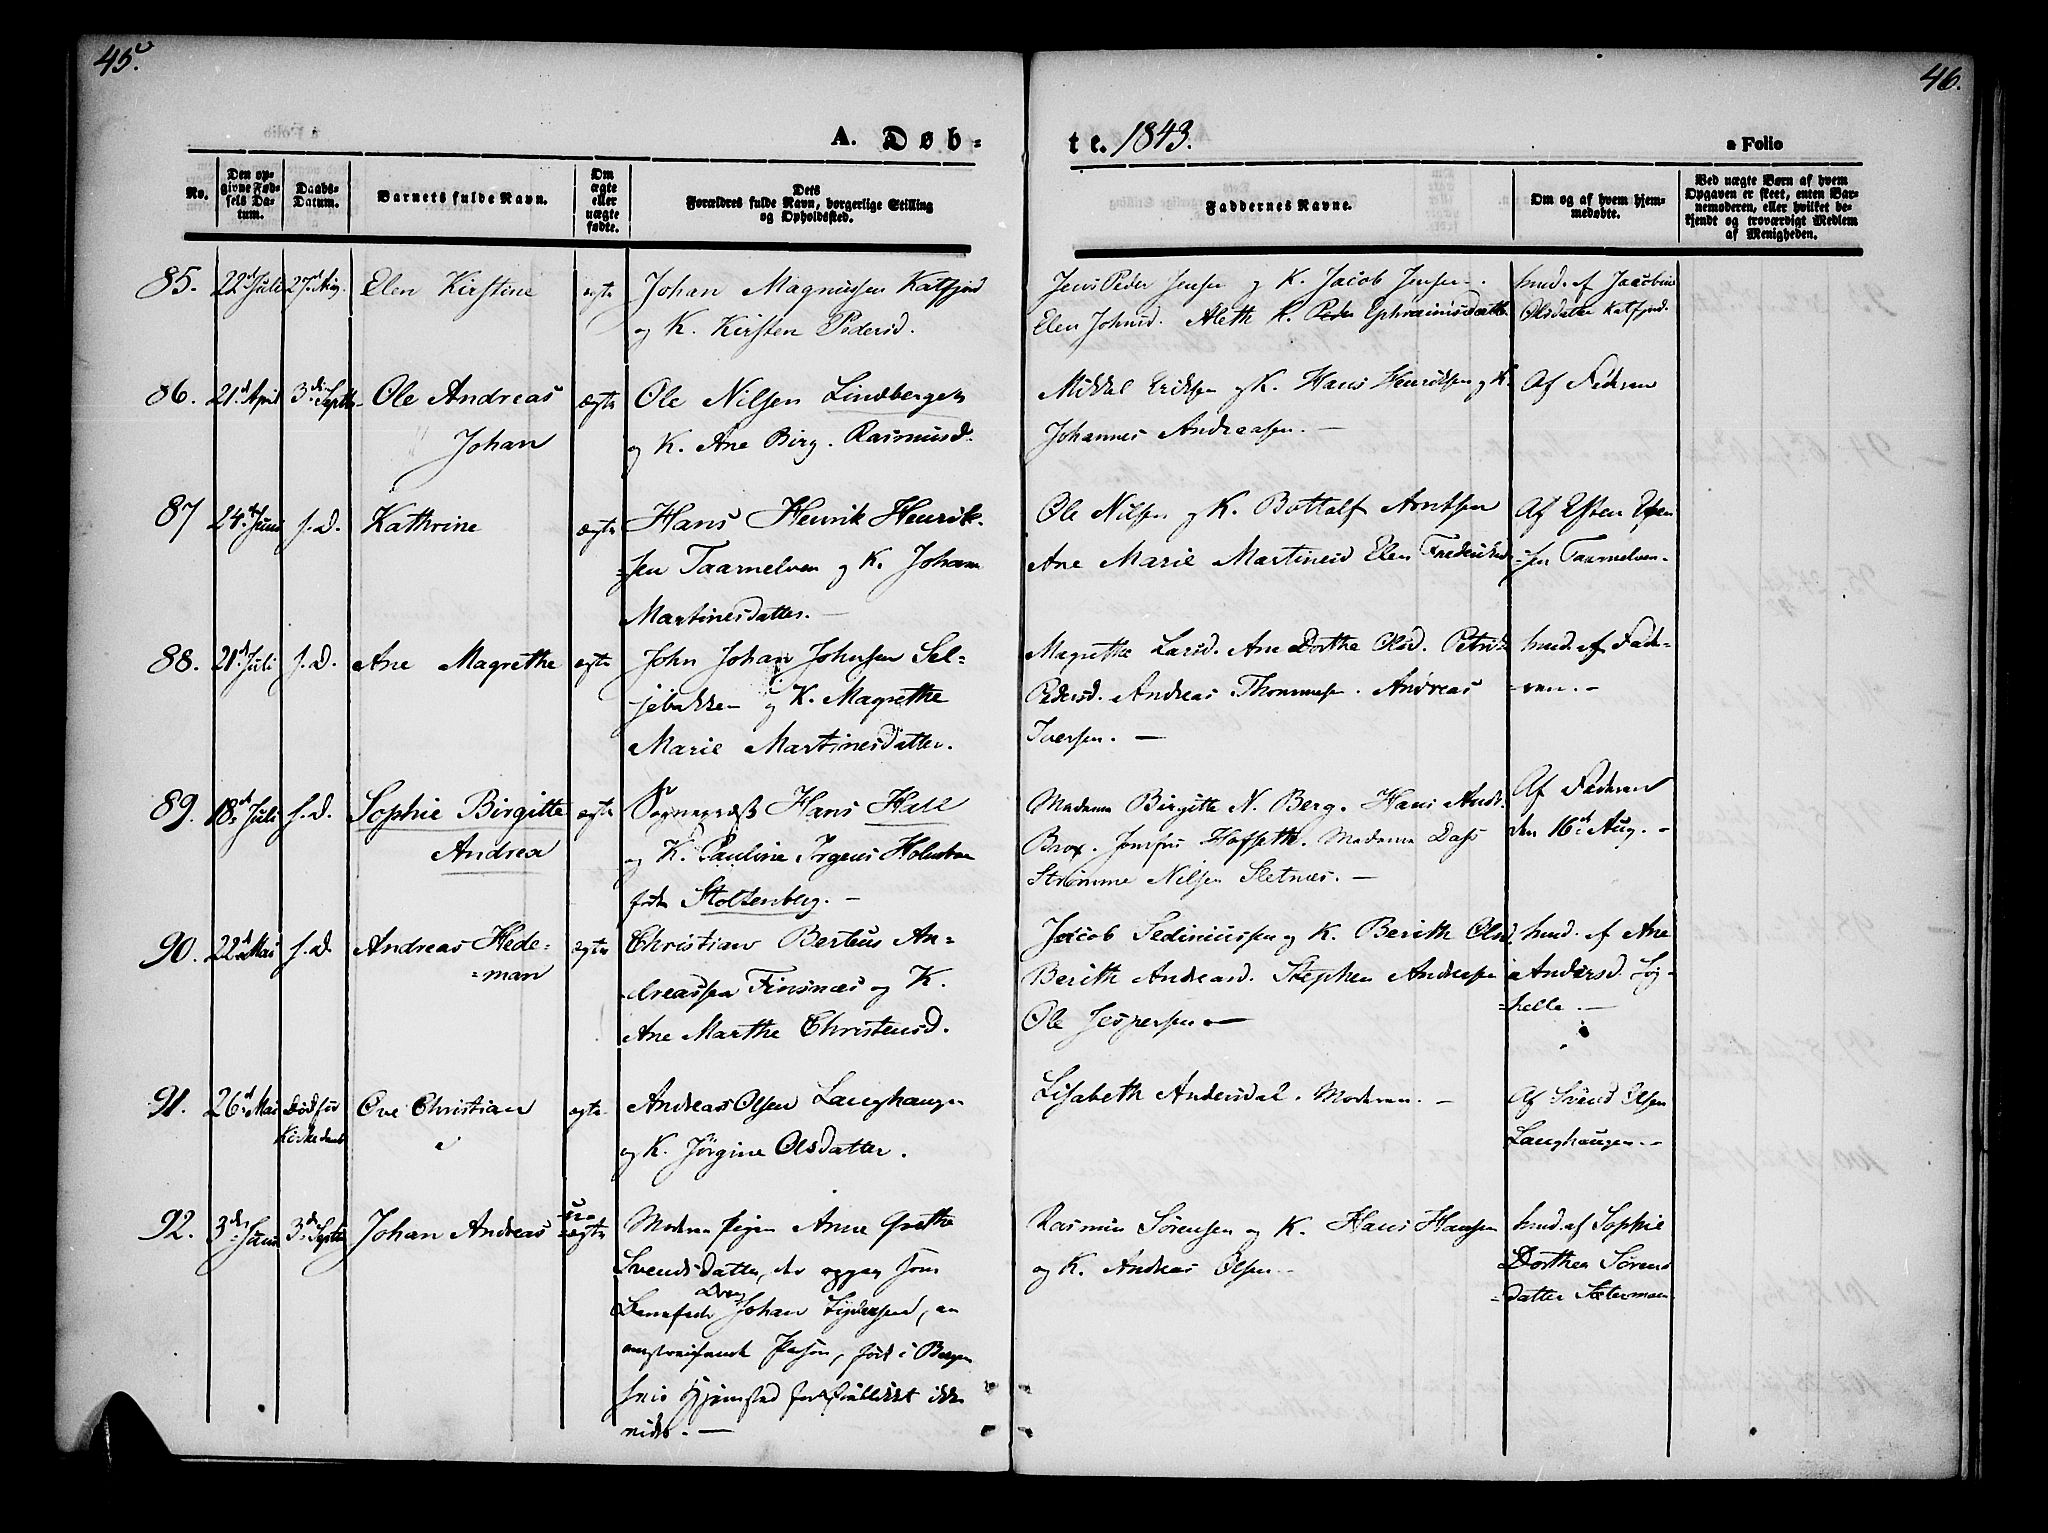 45.
46.
A. Døb-
te. 1843.
a Folio
No.
Den op-
givne Fød-
sels Da-
tum.
Daabs-
Datum.
Barnets fulde Navn.
Om
ægte
eller
uægte
fødte.
Dets
Forældres fulde Navn, borgerlige Stilling
og Opholdsted.
Faddernes Navne.
Om og af hvem hjem-
medøbte.
Ved uægte Børn af hvem
Opgaven er skeet, enten Bar-
nemoderen, eller hvilket be-
kjendt og troværdigt Medlem
af Menigheden.
85. 22d Juli 27d Aug. Elen Kirstine ægte
Johan Magnussen Katfjord
og K. Kirsten Pedersd.
Jens Peder Jensen og K. Jacob Jensen.
Elen Johnsd. Aleth K. Peder Ephraimsdatter
hmd. af Jacobine
Olsdatter Katfjord.
86. 21d April 3di Septbr Ole Andreas
Johan
ægte
Ole Nilsen Lindbergen
og K. Ane Birg. Rasmusd.
Mikkal Eriksen og K. Hans Henriksen og K.
Johannes Andreasen. —
Af Faderen
87 24d Juni s. d. Kathrine ægte
Hans Henrik Henrik-
sen Taarnelven og K. Johanna
Martinesdatter. —
Ole Nilsen og K. Bottolf Arntsen
Ane Marie Martinesd Elen Frederiksd
Af Esten Esten-
sen Taarnelven-
88. 21d Juli s. d. Ane Magrethe ægte
John Johan Johnsen Sel-
jebakken og K. Magrethe
Marie Martinesdatter.
Magrethe Larsd. Ane Dorthe Olsd. Petrid
Pedersd. Andreas Thommesen. Andreas
Iversen. —
hmd. af Fade-
ren. -
89. 18d Juli s. d. Sophie Birgitte
Andrea
ægte
Sognepræst Hans Hall
og K. Pauline Jrgens Holmboe
født Stoltenberg. —
Madame Birgitte N. Berg. Hans Andr.
Brox. Hofseth. Madame Dass
Strømme Nilsen Sletnæs. —
Af Faderen
den 16d Aug. -
90. 22d Mai s. d. Andreas Hede-
-man
ægte
Christian Berteus An-
dreassen Finsnæs og K.
Ane Marthe Christensd.
Jacob Sediniussen og K. Berith Olsd
Berith Andreasd. Stephen Andreasen
Ole Jespersen —
hmd. af Ane
Andersd. Lyg-
helle. —
91. 26d Mai Død før
Kirkedaab
Ove Christian ægte
Andreas Olsen Langhaugen
og K. Jørgine Olsdatter.
Lisabeth Andersdal. Moderen. —
Af Svend Olsen
Langhaugen.-
92. 3d Juni 3d Septbr Johan Andreas u-
ægte
Moderen pigen Anne Grethe
Svendsdatter, der opgav som
Barnefader Dreng Johan Lydersen, en
omstreifende Person, født i Bergen
hvis Hjemsted forøvrigt ikke
vides. —
Rasmus Sørensen og K. Hans Hansen
og K. Andreas Olsen —
hmd. af Sophie
Dorthea Sørens
datter Sætermoen